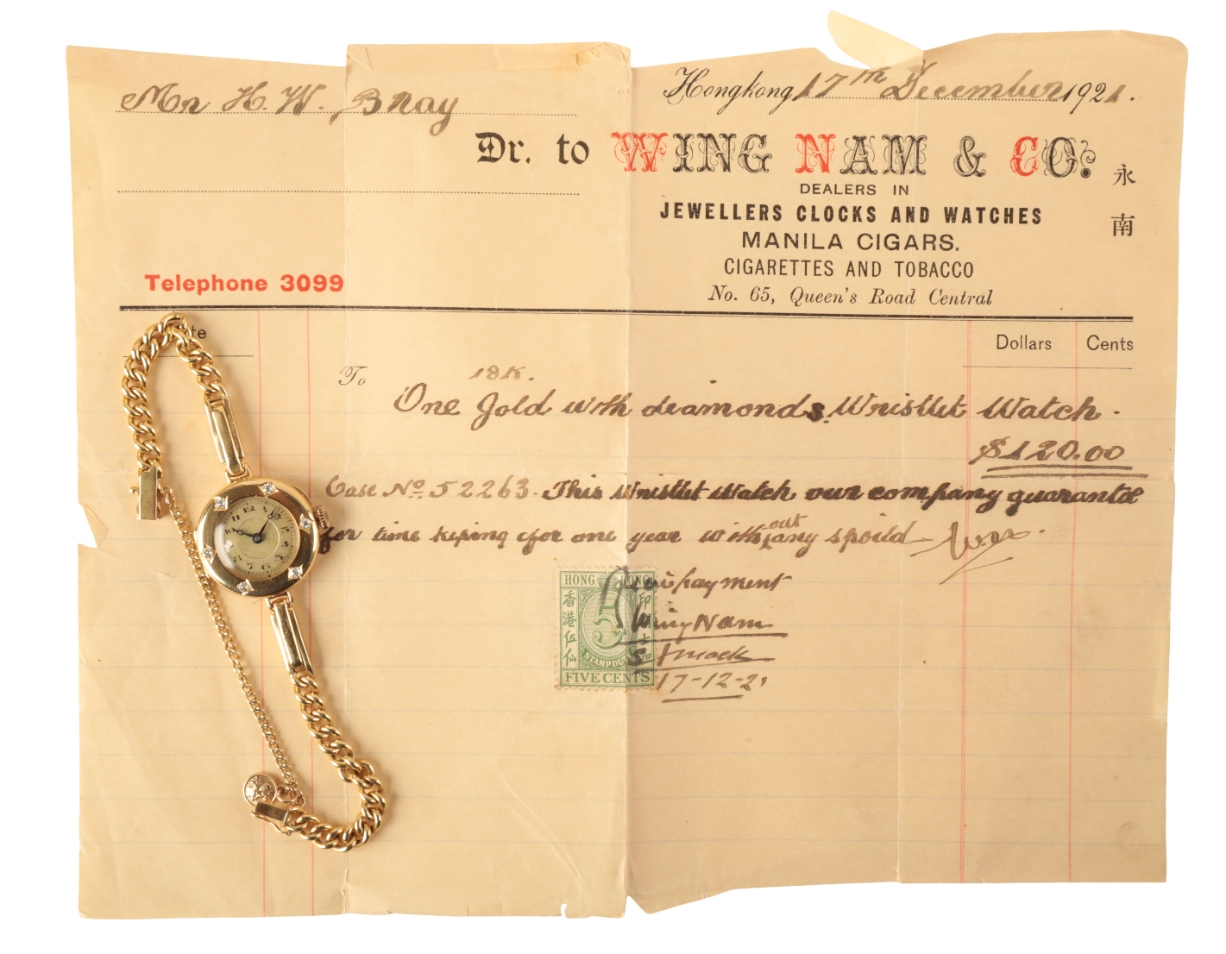 Mr H. W. Bray
Hongkong, 17th December 1921.
Dr. to WING NAM & CO.
永南
DEALERS IN
JEWELLERS CLOCKS AND WATCHES
MANILA CIGARS.
CIGARETTES AND TOBACCO
No. 65, Queen's Road Central
Telephone 3099
te
Dollars Cents
To
18K.
One Gold with diamonds Wristlet Watch.
$120.00
Case No. 52263. This Wristlet Watch our company guarantee
for time keping for one year without any spoild
payment
Wing Nam
17-12-21
HONG KONG
香港伍仙
印
5
STAMP DU
FIVE CENTS